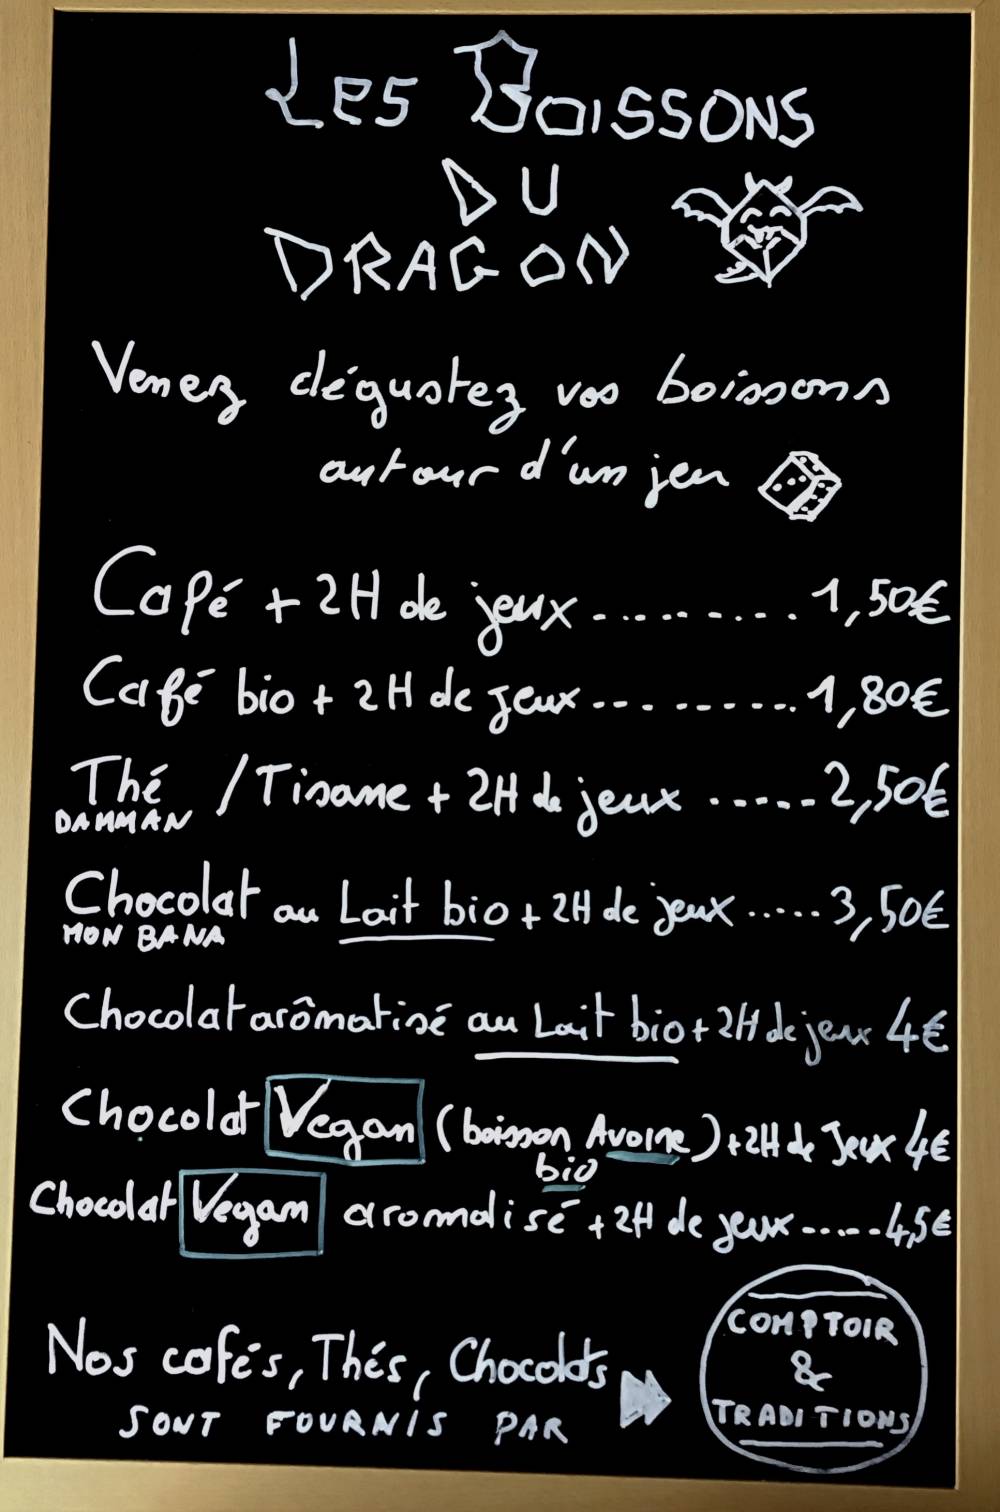 Les BOISSONS
DU
DRAGON
Venez dégustez vos boissons
autour d'un jeu
Café + 2H de jeux.......... 1,50€
Café bio + 2H de jeux.......... 1,80€
Thé / Tisane + 2H de jeux ...... 2,50€
DAMMAN
Chocolat au Lait bio + 2H de jeux ..... 3,50€
MON BANA
Chocolat arômatisé au Lait bio + 2H de jeux 4€
Chocolat Vegan (boisson Avoine) + 2H de Jeux 4€
bio
Chocolat Vegan aromatisé + 2H de jeux ...... 4,5€
Nos cafés, Thés, Chocolats
SONT FOURNIS PAR
COMPTOIR
&
TRADITIONS